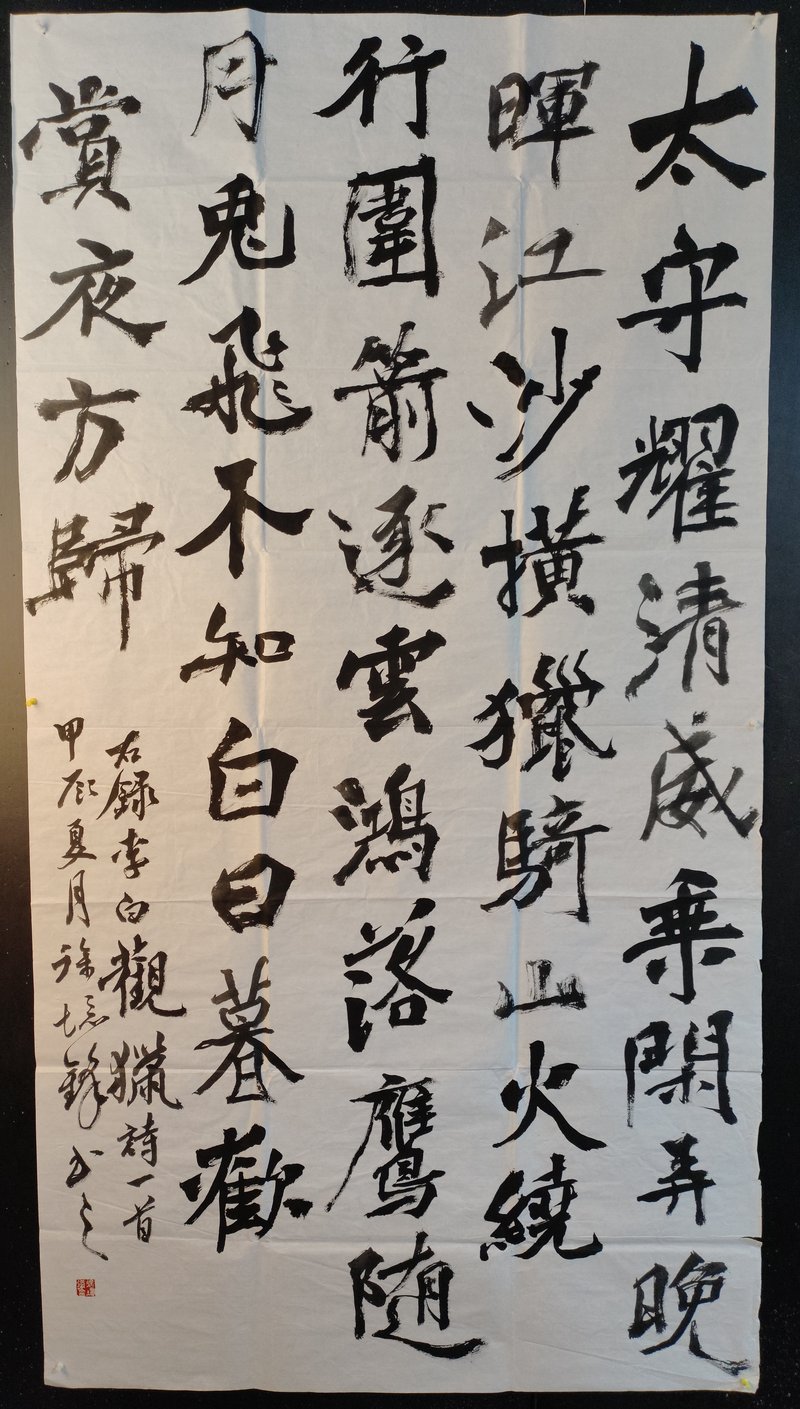 太守耀清威乘閑弄晚
暉江沙橫獵騎山火繞
行圍箭逐雲鴻落鷹随
月兔飛不知白日暮歡
賞夜方歸
右錄李白觀獵詩一首
甲辰夏月徐鋒書之